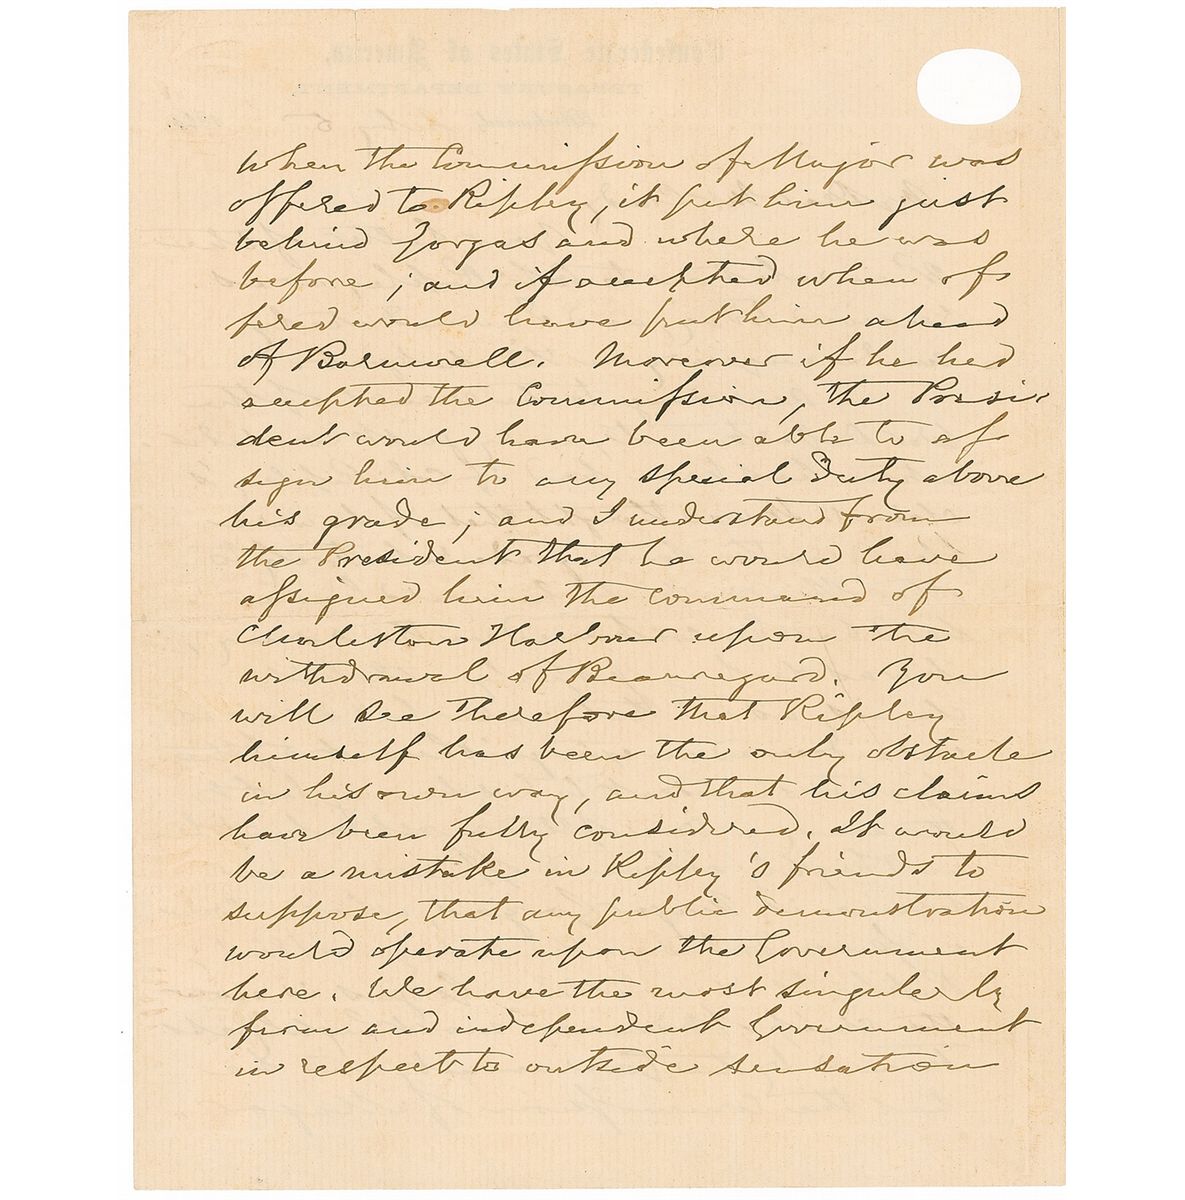 when the Commission of Major was
offered to Ripley, it put him just
behind Gorgas and where he was
before; and if accepted when of-
fered would have put him ahead
of Barnwell. Moreover if he had
accepted the Commission, the Presi-
dent would have been able to as
sign him to any special duty above
his grade; and I understand from
the President that he would have
assigned him the command of
Charleston Harbour upon the
withdrawal of Beauregard. You
will see therefore that Ripley
himself has been the only obstacle
in his own way, and that his claims
have been fully considered. It would
be a mistake in Ripley's friends to
suppose, that any public demonstration
would operate upon the Government
here. We have the most singularly
firm and independent Government
in respect to outside sensation